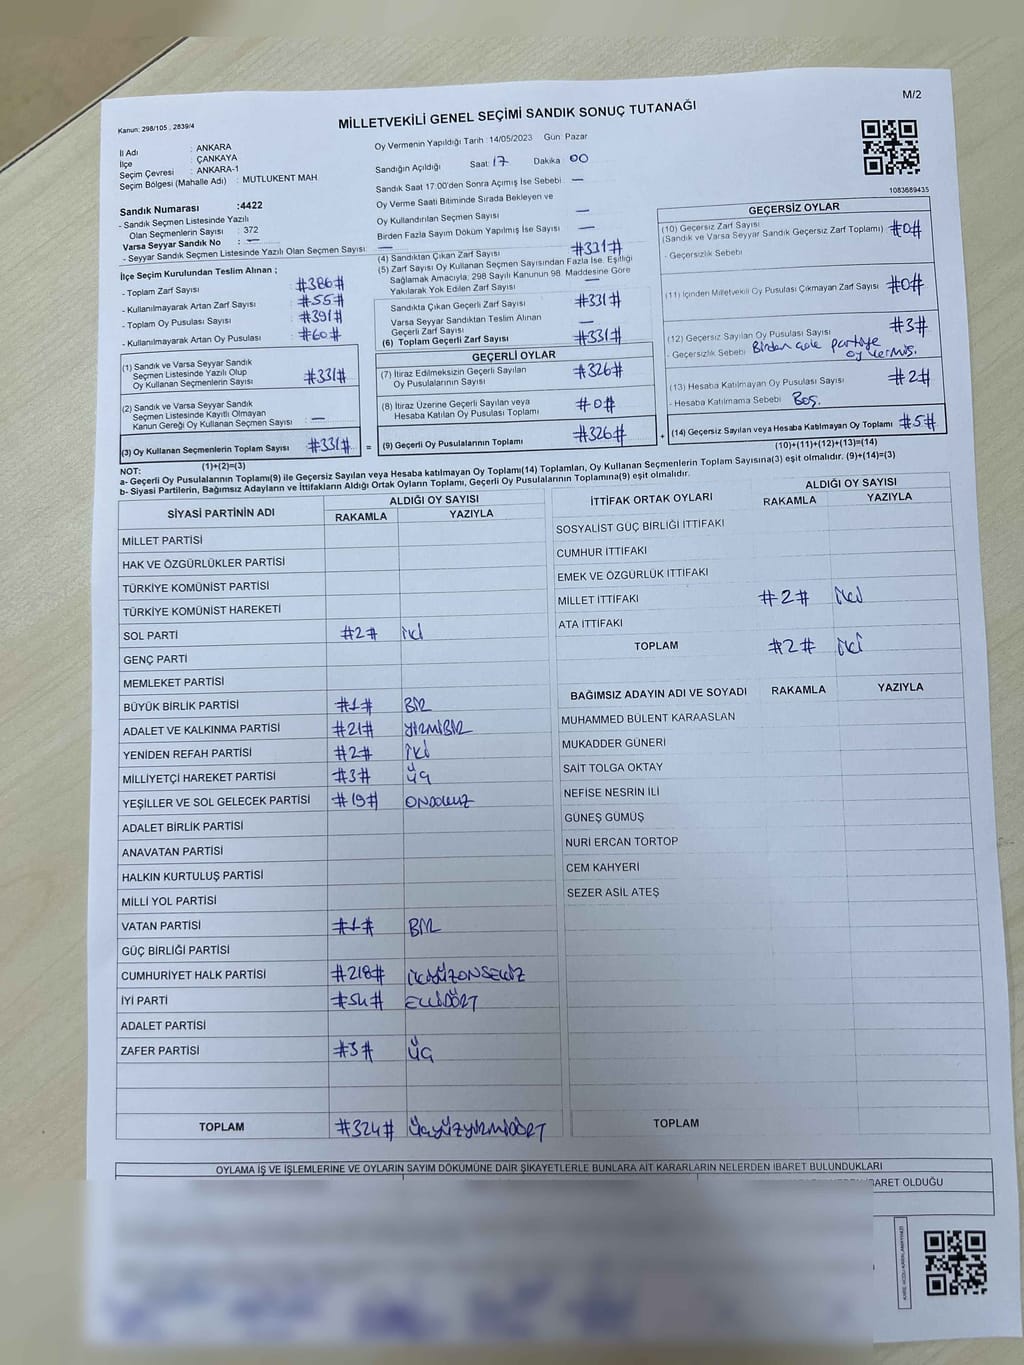 M/2
Kanun: 298/105 , 2839/4
MİLLETVEKİLİ GENEL SEÇİMİ SANDIK SONUÇ TUTANAĞI
İl Adı : ANKARA
İlçe : ÇANKAYA
Seçim Çevresi : ANKARA-1
Seçim Bölgesi (Mahalle Adı) : MUTLUKENT MAH.
Oy Vermenin Yapıldığı Tarih : 14/05/2023 Gün : Pazar
Sandığın Açıldığı Saat: 17 Dakika 00
Sandık Saat 17:00'den Sonra Açımış İse Sebebi —
Oy Verme Saati Bitiminde Sırada Bekleyen ve
Oy Kullandırılan Seçmen Sayısı —
Birden Fazla Sayım Döküm Yapılmış İse Sayısı —
1083689435
Sandık Numarası :4422
- Sandık Seçmen Listesinde Yazılı
Olan Seçmenlerin Sayısı : 372
Varsa Seyyar Sandık No : —
- Seyyar Sandık Seçmen Listesinde Yazılı Olan Seçmen Sayısı: —
İlçe Seçim Kurulundan Teslim Alınan ;
- Toplam Zarf Sayısı : #386#
- Kullanılmayarak Artan Zarf Sayısı : #55#
- Toplam Oy Pusulası Sayısı : #391#
- Kullanılmayarak Artan Oy Pusulası : #60#
(1) Sandık ve Varsa Seyyar Sandık
Seçmen Listesinde Yazılı Olup
Oy Kullanan Seçmenlerin Sayısı : #331#
(2) Sandık ve Varsa Seyyar Sandık
Seçmen Listesinde Kayıtlı Olmayan
Kanun Gereği Oy Kullanan Seçmen Sayısı : —
(3) Oy Kullanan Seçmenlerin Toplam Sayısı : #331# =
(1)+(2)=(3)
(4) Sandıktan Çıkan Zarf Sayısı #331#
(5) Zarf Sayısı Oy Kullanan Seçmen Sayısından Fazla İse, Eşitliği
Sağlamak Amacıyla, 298 Sayılı Kanunun 98. Maddesine Göre
Yakılarak Yok Edilen Zarf Sayısı : —
Sandıkta Çıkan Geçerli Zarf Sayısı #331#
Varsa Seyyar Sandıktan Teslim Alınan
Geçerli Zarf Sayısı —
(6) Toplam Geçerli Zarf Sayısı : #331#
GEÇERLİ OYLAR
(7) İtiraz Edilmeksizin Geçerli Sayılan
Oy Pusulalarının Sayısı : #326#
(8) İtiraz Üzerine Geçerli Sayılan veya
Hesaba Katılan Oy Pusulası Toplamı : #0#
(9) Geçerli Oy Pusulalarının Toplamı : #326# +
GEÇERSİZ OYLAR
(10) Geçersiz Zarf Sayısı
(Sandık ve Varsa Seyyar Sandık Geçersiz Zarf Toplamı) : #0#
- Geçersizlik Sebebi
(11) İçinden Milletvekili Oy Pusulası Çıkmayan Zarf Sayısı : #0#
(12) Geçersiz Sayılan Oy Pusulası Sayısı : #3#
- Geçersizlik Sebebi Birden çok partiye
oy vermiş.
(13) Hesaba Katılmayan Oy Pusulası Sayısı : #2#
- Hesaba Katılmama Sebebi : Boş.
(14) Geçersiz Sayılan veya Hesaba Katılmayan Oy Toplamı : #5#
(10)+(11)+(12)+(13)=(14)
NOT:
a- Geçerli Oy Pusulalarının Toplamı(9) ile Geçersiz Sayılan veya Hesaba katılmayan Oy Toplamı(14) Toplamları, Oy Kullanan Seçmenlerin Toplam Sayısına(3) eşit olmalıdır. (9)+(14)=(3)
b- Siyasi Partilerin, Bağımsız Adayların ve İttifakların Aldığı Ortak Oyların Toplamı, Geçerli Oy Pusulalarının Toplamına(9) eşit olmalıdır.
SİYASİ PARTİNİN ADI ALDIĞI OY SAYISI
RAKAMLA YAZIYLA
MİLLET PARTİSİ
HAK VE ÖZGÜRLÜKLER PARTİSİ
TÜRKİYE KOMÜNİST PARTİSİ
TÜRKİYE KOMÜNİST HAREKETİ
SOL PARTİ #2# iki
GENÇ PARTİ
MEMLEKET PARTİSİ
BÜYÜK BİRLİK PARTİSİ #1# BİR
ADALET VE KALKINMA PARTİSİ #21# YİRMİBİR
YENİDEN REFAH PARTİSİ #2# iki
MİLLİYETÇİ HAREKET PARTİSİ #3# üç
YEŞİLLER VE SOL GELECEK PARTİSİ #19# ONDOKUZ
ADALET BİRLİK PARTİSİ
ANAVATAN PARTİSİ
HALKIN KURTULUŞ PARTİSİ
MİLLİ YOL PARTİSİ
VATAN PARTİSİ #1# BİR
GÜÇ BİRLİĞİ PARTİSİ
CUMHURİYET HALK PARTİSİ #218# İKİYÜZONSEKİZ
İYİ PARTİ #54# ELLİDÖRT
ADALET PARTİSİ
ZAFER PARTİSİ #3# üç
TOPLAM #324# ÜçYÜZYİRMİDÖRT
İTTİFAK ORTAK OYLARI ALDIĞI OY SAYISI
RAKAMLA YAZIYLA
SOSYALİST GÜÇ BİRLİĞİ İTTİFAKI
CUMHUR İTTİFAKI
EMEK VE ÖZGÜRLÜK İTTİFAKI
MİLLET İTTİFAKI #2# iki
ATA İTTİFAKI
TOPLAM #2# iki
BAĞIMSIZ ADAYIN ADI VE SOYADI RAKAMLA YAZIYLA
MUHAMMED BÜLENT KARAASLAN
MUKADDER GÜNERİ
SAİT TOLGA OKTAY
NEFİSE NESRİN İLİ
GÜNEŞ GÜMÜŞ
NURİ ERCAN TORTOP
CEM KAHYERİ
SEZER ASİL ATEŞ
TOPLAM
OYLAMA İŞ VE İŞLEMLERİNE VE OYLARIN SAYIM DÖKÜMÜNE DAİR ŞİKAYETLERLE BUNLARA AİT KARARLARIN NELERDEN İBARET BULUNDUKLARI
İBARET OLDUĞU